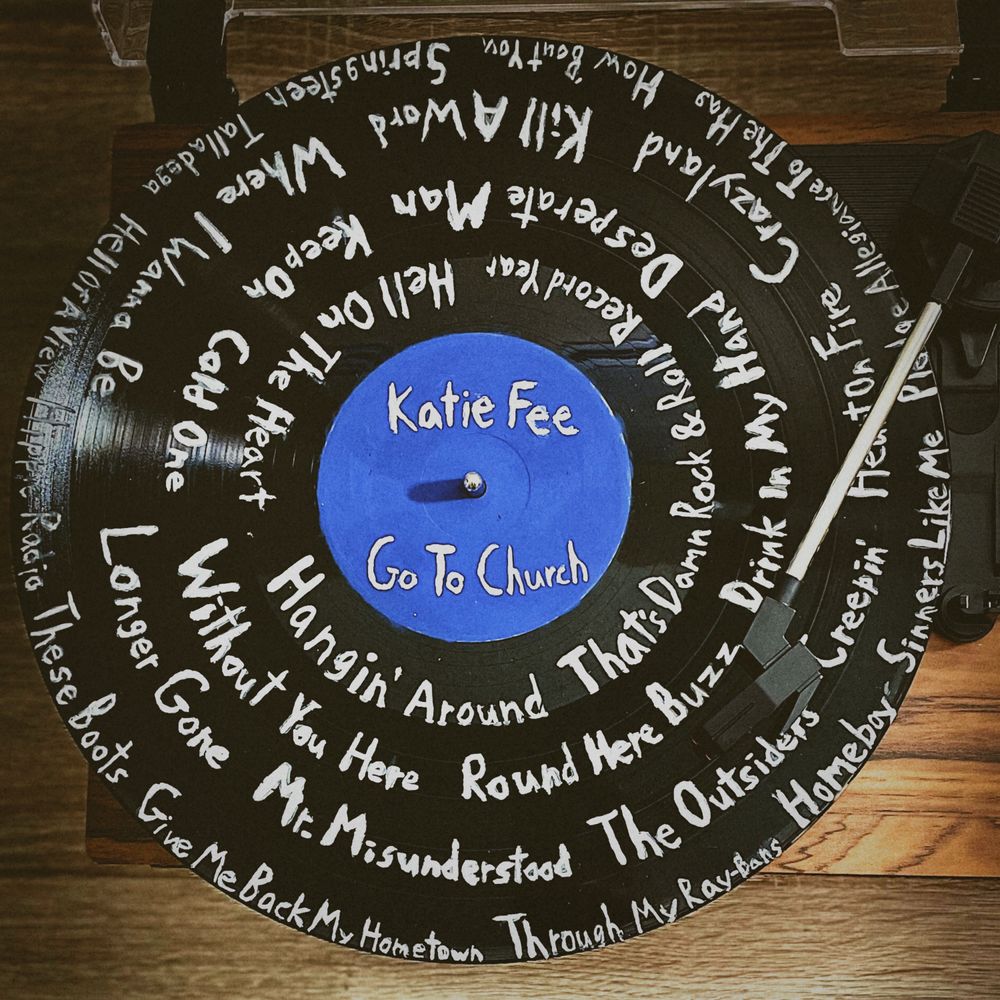 Katie Fee
Go To Church
How 'Bout You
Springsteen
Talladega
Hell Or A View
Hippie Radio
These Boots
Give Me Back My Hometown
Through My Ray-Bans
Homeboy
Sinners Like Me
Pledge Allegiance To The Hag
Kill A Word
Where I Wanna Be
Longer Gone
Mr. Misunderstood
The Outsiders
Creepin'
Heart On Fire
Crazyland
Desperate Man
Keep On
Cold One
Without You Here
Round Here Buzz
Drink In My Hand
Record Year
Hell On The Heart
Hangin' Around
That's Damn Rock & Roll